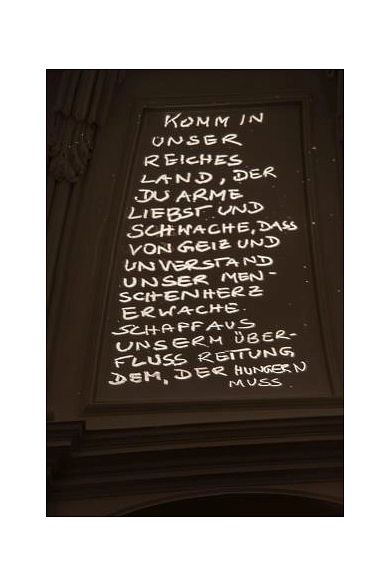 KOMM IN
UNSER
REICHES
LAND, DER
DU ARME
LIEBST UND
SCHWACHE, DASS
VON GEIZ UND
UNVERSTAND
UNSER MEN-
SCHENHERZ
ERWACHE.
SCHAFF AUS
UNSERM ÜBER-
FLUSS RETTUNG
DEM, DER HUNGERN
MUSS.